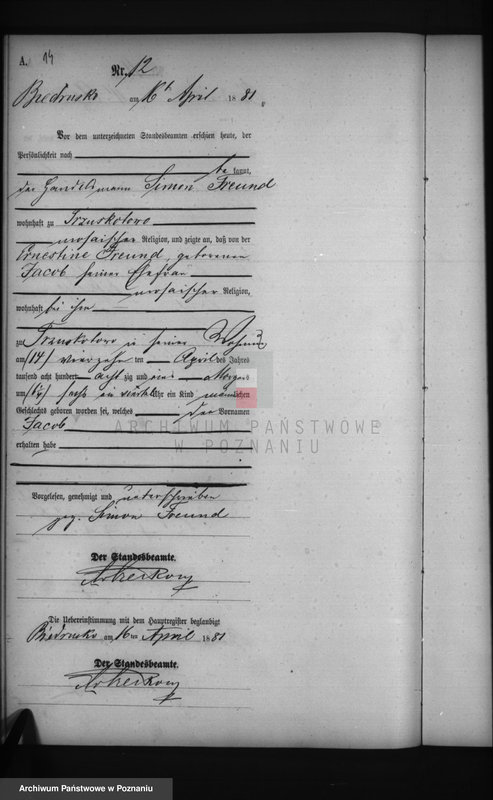 A. 14
Nr. 12
Biedrusko am 16t April 1881
Vor dem unterzeichneten Standesbeamten erschien heute, der
Persönlichkeit nach
be kannt,
der Handelsmann Simon Freund
wohnhaft zu Trzuskotowo
mosaischer Religion, und zeigte an, daß von der
Ernestine Freund, geborenen
Jacob seiner Ehefrau
mosaischer Religion,
wohnhaft bei ihm
zu Trzuskotowo in seiner Wohnung
am (14) vierzehn ten April des Jahres
tausend acht hundert acht zig und eins Morgens
um sechs ein viertel Uhr ein Kind männlichen
Geschlechts geboren worden sei, welches der Vornamen
Jacob
erhalten habe
Vorgelesen, genehmigt und unterschrieben
gez. Simon Freund
Der Standesbeamte.
Die Uebereinstimmung mit dem Hauptregister beglaubigt
Biedrusko am 16ten April 1881
Der Standesbeamte.
ARCHIWUM PAŃSTWOWE
W POZNANIU
Archiwum Państwowe w Poznaniu